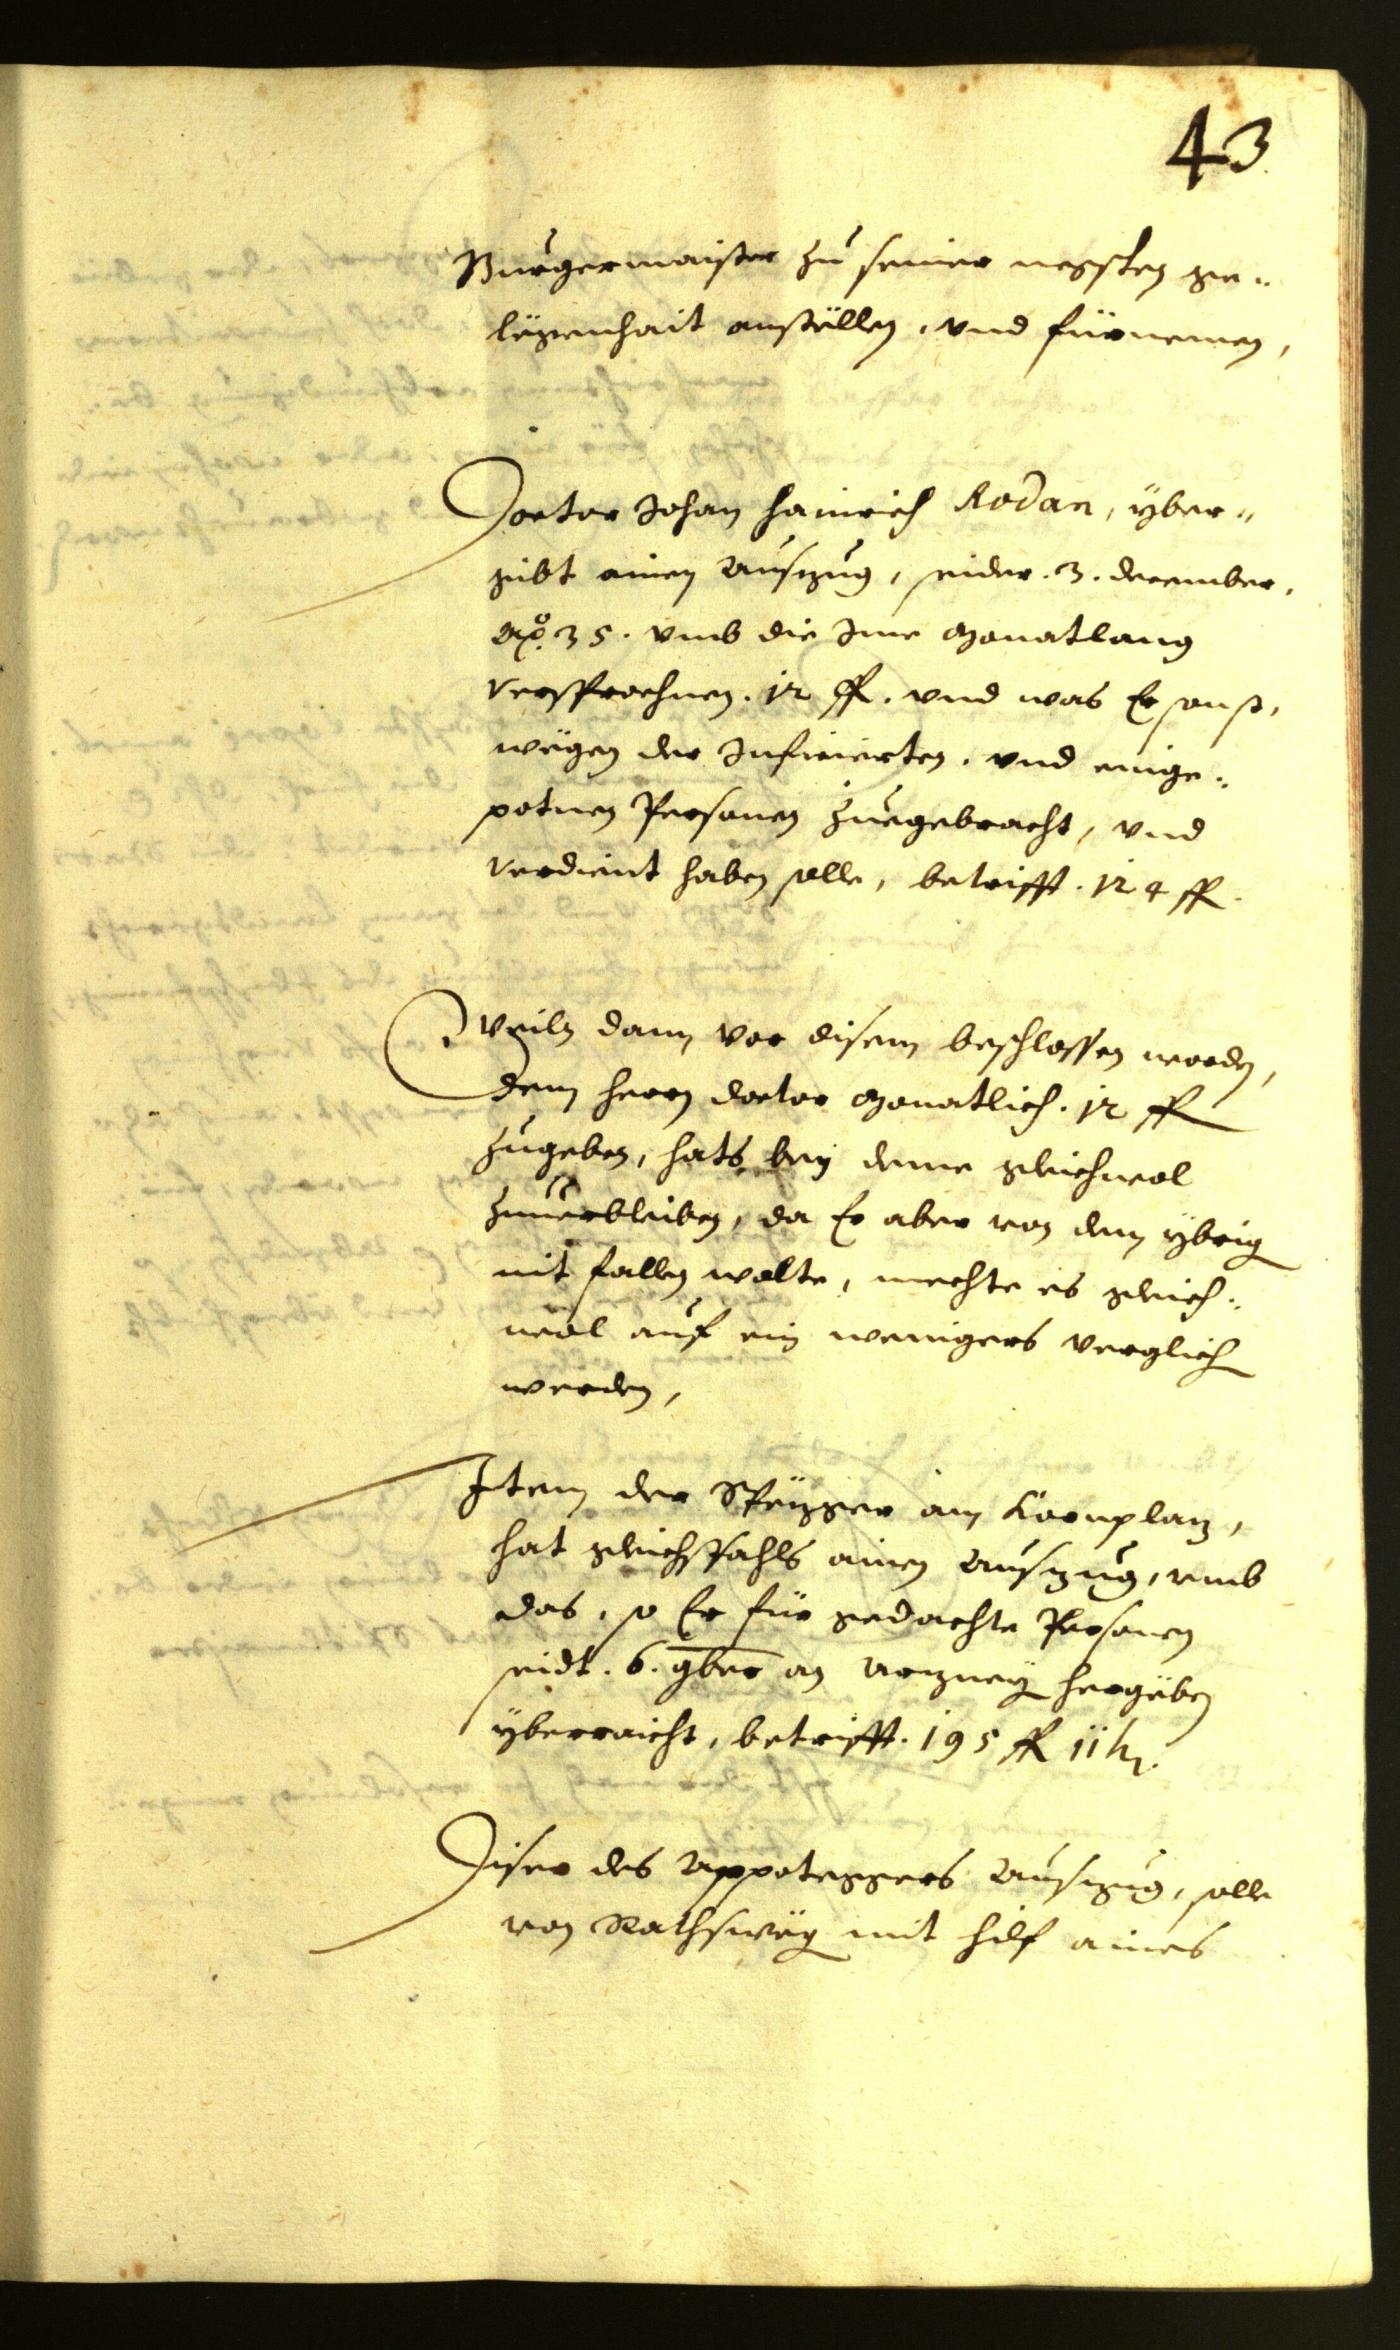 43
Burgermaister zu seiner negsten ge¬
lëgenhait anstëllen, vnd fürnemen,
Doctor Johan Hainrich Rodan, yber¬
gibt ainen Auszug, seider .3. december,
Aõ. 35. vmb die Jme Monatlang
versprochnen. 12 fl. vnd was Er sonst,
wëgen der Inficierten, vnd einge¬
potnen Personen zuegebracht, vnd
verdient haben solle, betrifft. 124 fl.
Weiln dann vor disem beschlossen worden,
dem herrn doctor Monatlich. 12 fl
zugeben, hats bey deme gleichwol
zuuerbleiben, da Er aber von dem ybrig
nit fallen wolte, mechte es gleich¬
wol auf ein wenigers verglich
werden,
Item der Spëzger am Kornplaz,
hat gleichsfahls ainen Auszug, vmb
das, so Er für gedachte Personen
seidt. 6. 9ber an Arzney hergëben
yberraicht, betrifft. 195 fl 11 kr.
Diser des Appoteggers Auszug, solle
von Rathswëg mit hilf aines